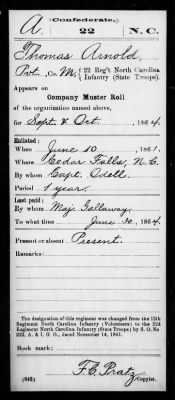 Confederate.
A. 22 N.C.
Thomas Arnold
Pvt., Co. M, 22 Reg't North Carolina
Infantry (State Troops).
Appears on
Company Muster Roll
of the organization named above,
for Sept. & Oct., 1864.
Enlisted:
When June 10, 1861.
Where Cedar Falls, N.C.
By whom Capt. Odell.
Period 1 year.
Last paid:
By whom Maj. Gallaway.
To what time June 30, 1864.
Present or absent Present.
Remarks:
The designation of this regiment was changed from the 12th
Regiment North Carolina Infantry (Volunteers) to the 22d
Regiment North Carolina Infantry (State Troops) by S. O. No.
222, A. & I. G. O., dated November 14, 1861.
Book mark:
F.C. Pratz
(642) Copyist.